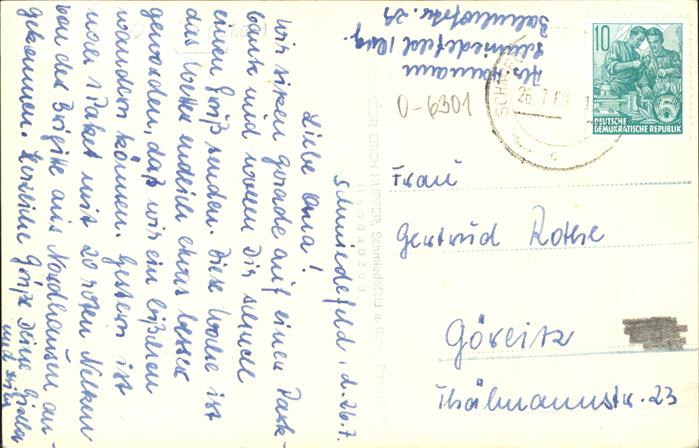 Schmiedefeld, d. 26.7.
Liebe Oma!
Wir sitzen gerade auf einer Park-
bank und wollen Dir schnell
einen Gruß senden. Diese Woche ist
das Wetter endlich etwas besser
geworden, daß wir ein bißchen
wandern können. Gestern ist
unser Paket mit 20 roten Nelken
von der Brigitte aus Nordhausen an-
gekommen. Herzliche Grüße Deine
und
Abs. Hermann
Schmiedefeld / Rstg.
Bahnhofstr. 29
0-6301
10
5
DEUTSCHE
DEMOKRATISCHE REPUBLIK
SCHMIE
26.7.6
c
ERICH KUPFER, Schmiedefeld a. R
Handabzug
Frau
Gertrud Rothe
Görlitz
Thälmannstr. 23